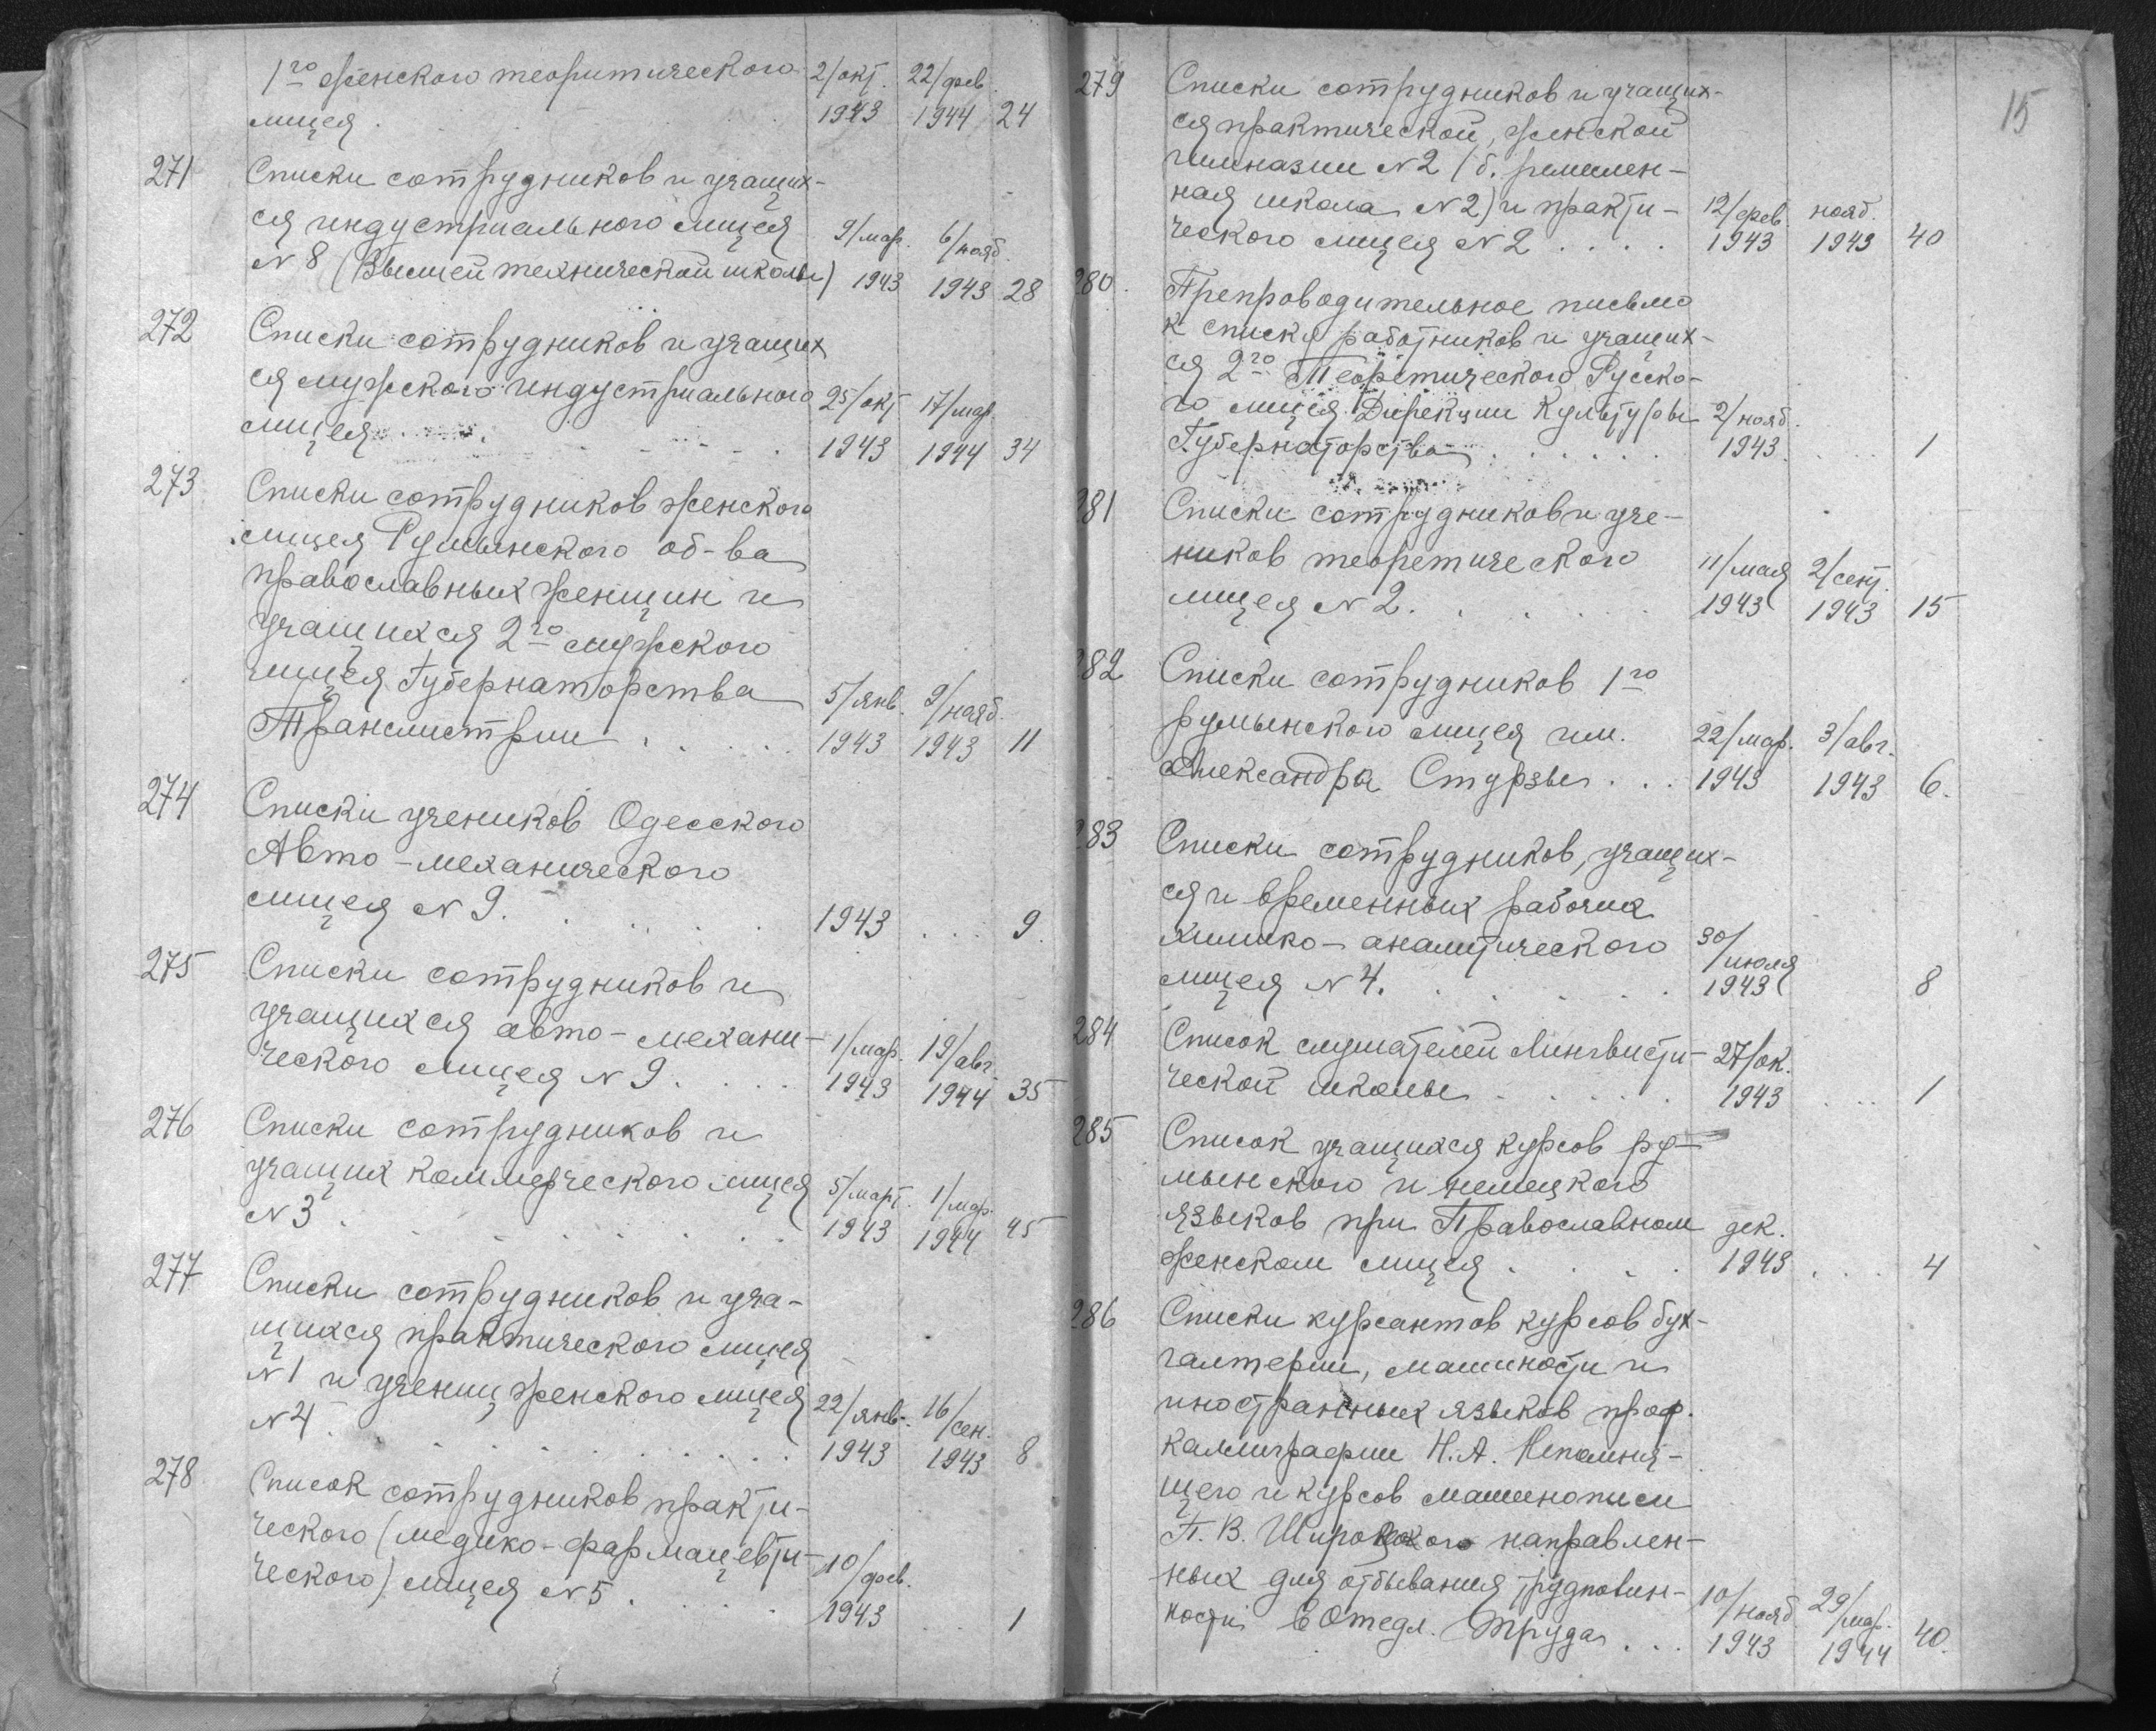 1го женского теоритического 2/окт. 22/фев.
лицея . . . 1943 1944 24
271 Списки сотрудников и учащих-
ся индустриального лицея 9/мар. 6/нояб.
N 8 (Высшей технической школы) 1943 1943 28
272 Списки сотрудников и учащих
ся мужского индустриального 25/окт 17/мар.
лицея . . . 1943 1944 34
273 Списки сотрудников женского
лицея Румынского об-ва
православных женщин и
учащихся 2го мужского
лицея Губернаторства 5/янв. 9/нояб.
Транснистрии . . . 1943 1943 11
274 Списки учеников Одесского
Авто-механического
лицея N 9. . . . 1943 . . . 9.
275 Списки сотрудников и
учащихся авто-механи- 1/мар. 19/авг.
ческого лицея N 9. . . . 1943 1944 35
276 Списки сотрудников и
учащих коммерческого лицея 5/март. 1/мар.
N 3 . . . 1943 1944 45
277 Списки сотрудников и уча-
щихся практического лицея
N 1 и учениц женского лицея 22/янв. 16/сен.
N 4 . . . 1943 1943 8
278 Список сотрудников практи-
ческого (медико-фармацевти- 10/фев.
ческого) лицея N 5 . . . 1943 . . 1
15
279 Списки сотрудников и учащих-
ся практической, женской
гимназии N 2 (б. ремеслен-
ная школа N 2) и практи- 12/фев. нояб.
ческого лицея N 2 . . . . 1943 1943 40
280. Препроводительное письмо
к списку работников и учащих-
ся 2го Теоретического Русско-
го лицея Дирекции Культуры 2/нояб.
Губернаторства . . . 1943 . . . 1
281 Списки сотрудников и уче-
ников теоретического 11/мая 2/сент.
лицея N 2. . . . 1943 1943 15
282 Списки сотрудников 1го
румынского лицея им. 22/мар. 3/авг.
Александра Стурзы . . . 1943 1943 6.
283 Списки сотрудников, учащих-
ся и временных рабочих
химико-аналитического 30/июля
лицея N 4. . . . 1943 8
284 Список слушателей Лингвисти- 27/ок.
ческой школы . . . 1943 . . . 1
285 Список учащихся курсов ру-
мынского и немецкого
языков при Православном дек.
женском лицея . . . . 1943 . . . 4
286 Списки курсантов курсов бух-
галтерии, машинописи и
иностранных языков проф.
каллиграфии Н.А. Непомня-
щего и курсов машинописи
П.В. направлен-
ных для отбывания трудповин- 10/нояб. 29/мар.
ности в Отедл. Труда . . . 1943 1944 40.